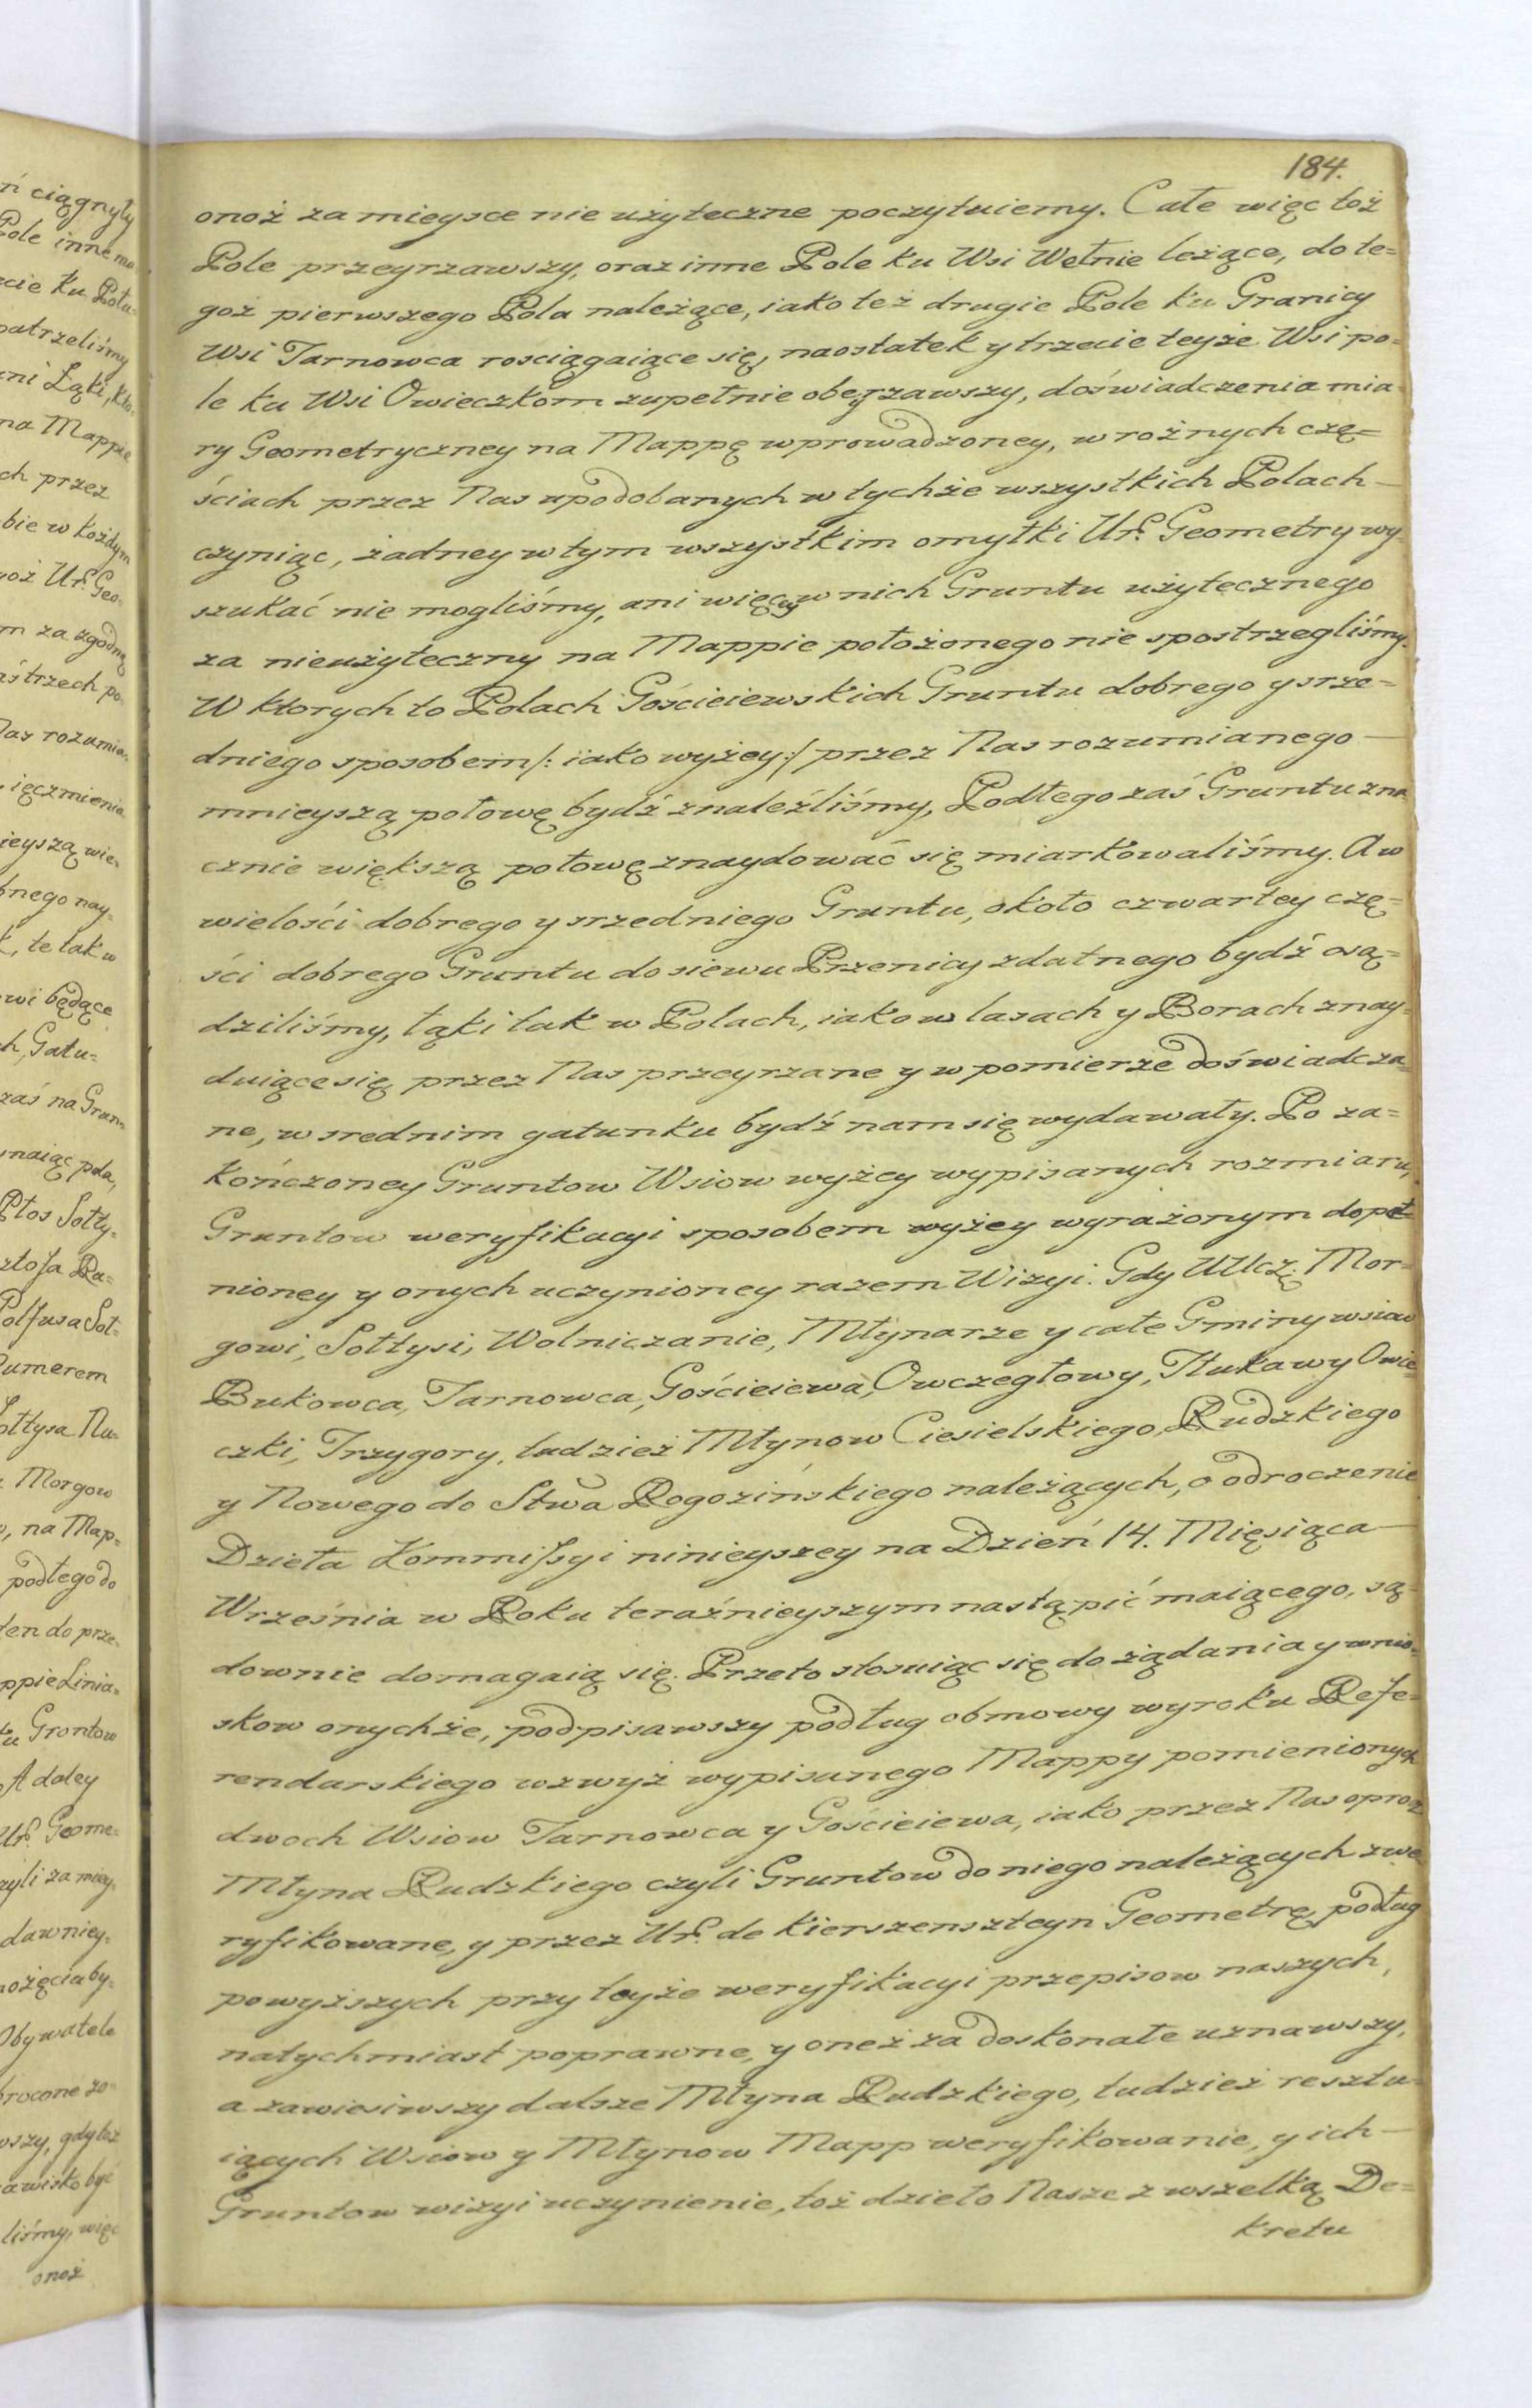 184.
onoż za mieysce nie użyteczne poczytuiemy. Całe więc toż
Pole przeyrzawszy, oraz inne Pole ku Wsi Wełnie leżące, do te=
goż pierwszego Pola należące, iako też drugie Pole ku Granicy
Wsi Tarnowca rosciągaiące się, naostatek y trzecie teyże Wsi po=
le ku Wsi Owieczkom zupełnie obeyrzawszy, doświadczenia mia
ry Geometryczney na Mappę wprowadzoney, w rożnych czę=
ściach przez Nas upodobanych w tychże wszystkich Polach —
czyniąc, żadney w tym wszystkim omyłki Ur. Geometry wy=
szukać nie mogliśmy, ani więcey w nich Gruntu użytecznego
za nieużyteczny na Mappie położonego nie spostrzegliśmy.
W ktorych to Polach Gościeiewskich Gruntu dobrego y srze=
dniego sposobem /: iako wyżey :/ przez Nas rozumianego —
mnieyszą połowę bydź znaleźliśmy, Podłego zaś Gruntu zna
cznie większą połowę znaydować się miarkowaliśmy. A w
wielości dobrego y srzedniego Gruntu, około czwartey czę=
ści dobrego Gruntu do siewu Przenicy zdatnego bydź osą=
dziliśmy, łąki tak w Polach, iako w lasach y Borach znay=
duiące się przez Nas przeyrzane y w pomierze doświadcza=
ne, w srednim gatunku bydź nam się wydawały. Po za=
kończoney Gruntow Wsiow wyżey wypisanych rozmiaru,
Gruntow weryfikacyi sposobem wyżey wyrażonym dopeł=
nioney y onych uczynioney razem Wizyi. Gdy UUczę: Mor=
gowi, Sołtysi, Wolniczanie, Młynarze y całe Gminy wsiow
Bukowca, Tarnowca, Gościeiewa, Owczegłowy, Tłukawy Owie
czki, Trzygory, tudzież Młynow Ciesielskiego, Rudzkiego
y Nowego do Stwa Rogozińskiego należących, o odroczenie
Dzieła Kommissyi ninieyszey na Dzień 14. Mięsiąca —
Września w Roku teraźnieyszym nastąpić maiącego, są=
downie domagaią się. Przeto stosuiąc się do żądania y wnio=
skow onychże, podpisawszy podług obmowy wyroku Refe=
rendarskiego wzwyż wypisanego Mappy pomienionych
dwoch Wsiow Tarnowca y Gościeiewa, iako przez Nas oprocz
Młyna Rudzkiego czyli Gruntow do niego należących zwe
ryfikowane, y przez Ur. de Kierszenszteyn Geometrę podług
powyższych przy teyże weryfikacyi przepisow naszych,
natychmiast poprawne, y oneż za doskonałe uznawszy,
a zawiesiwszy dalsze Młyna Rudzkiego, tudzież resztu=
iących Wsiow y Młynow Mapp weryfikowanie, y ich —
Gruntow wizyi uczynienie, toż dzieło Nasze z wszelką De=
kretu